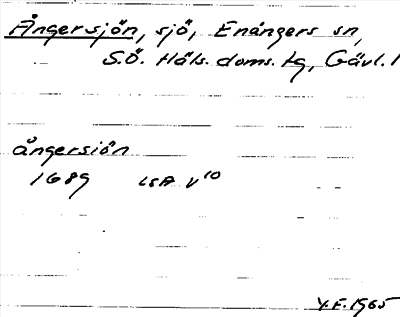 Ångersjön, sjö, Enångers sn,
S.Ö. Häls. doms. tg, Gävl. l
ångersiön
1689 LSA V10
Y.F. 1965